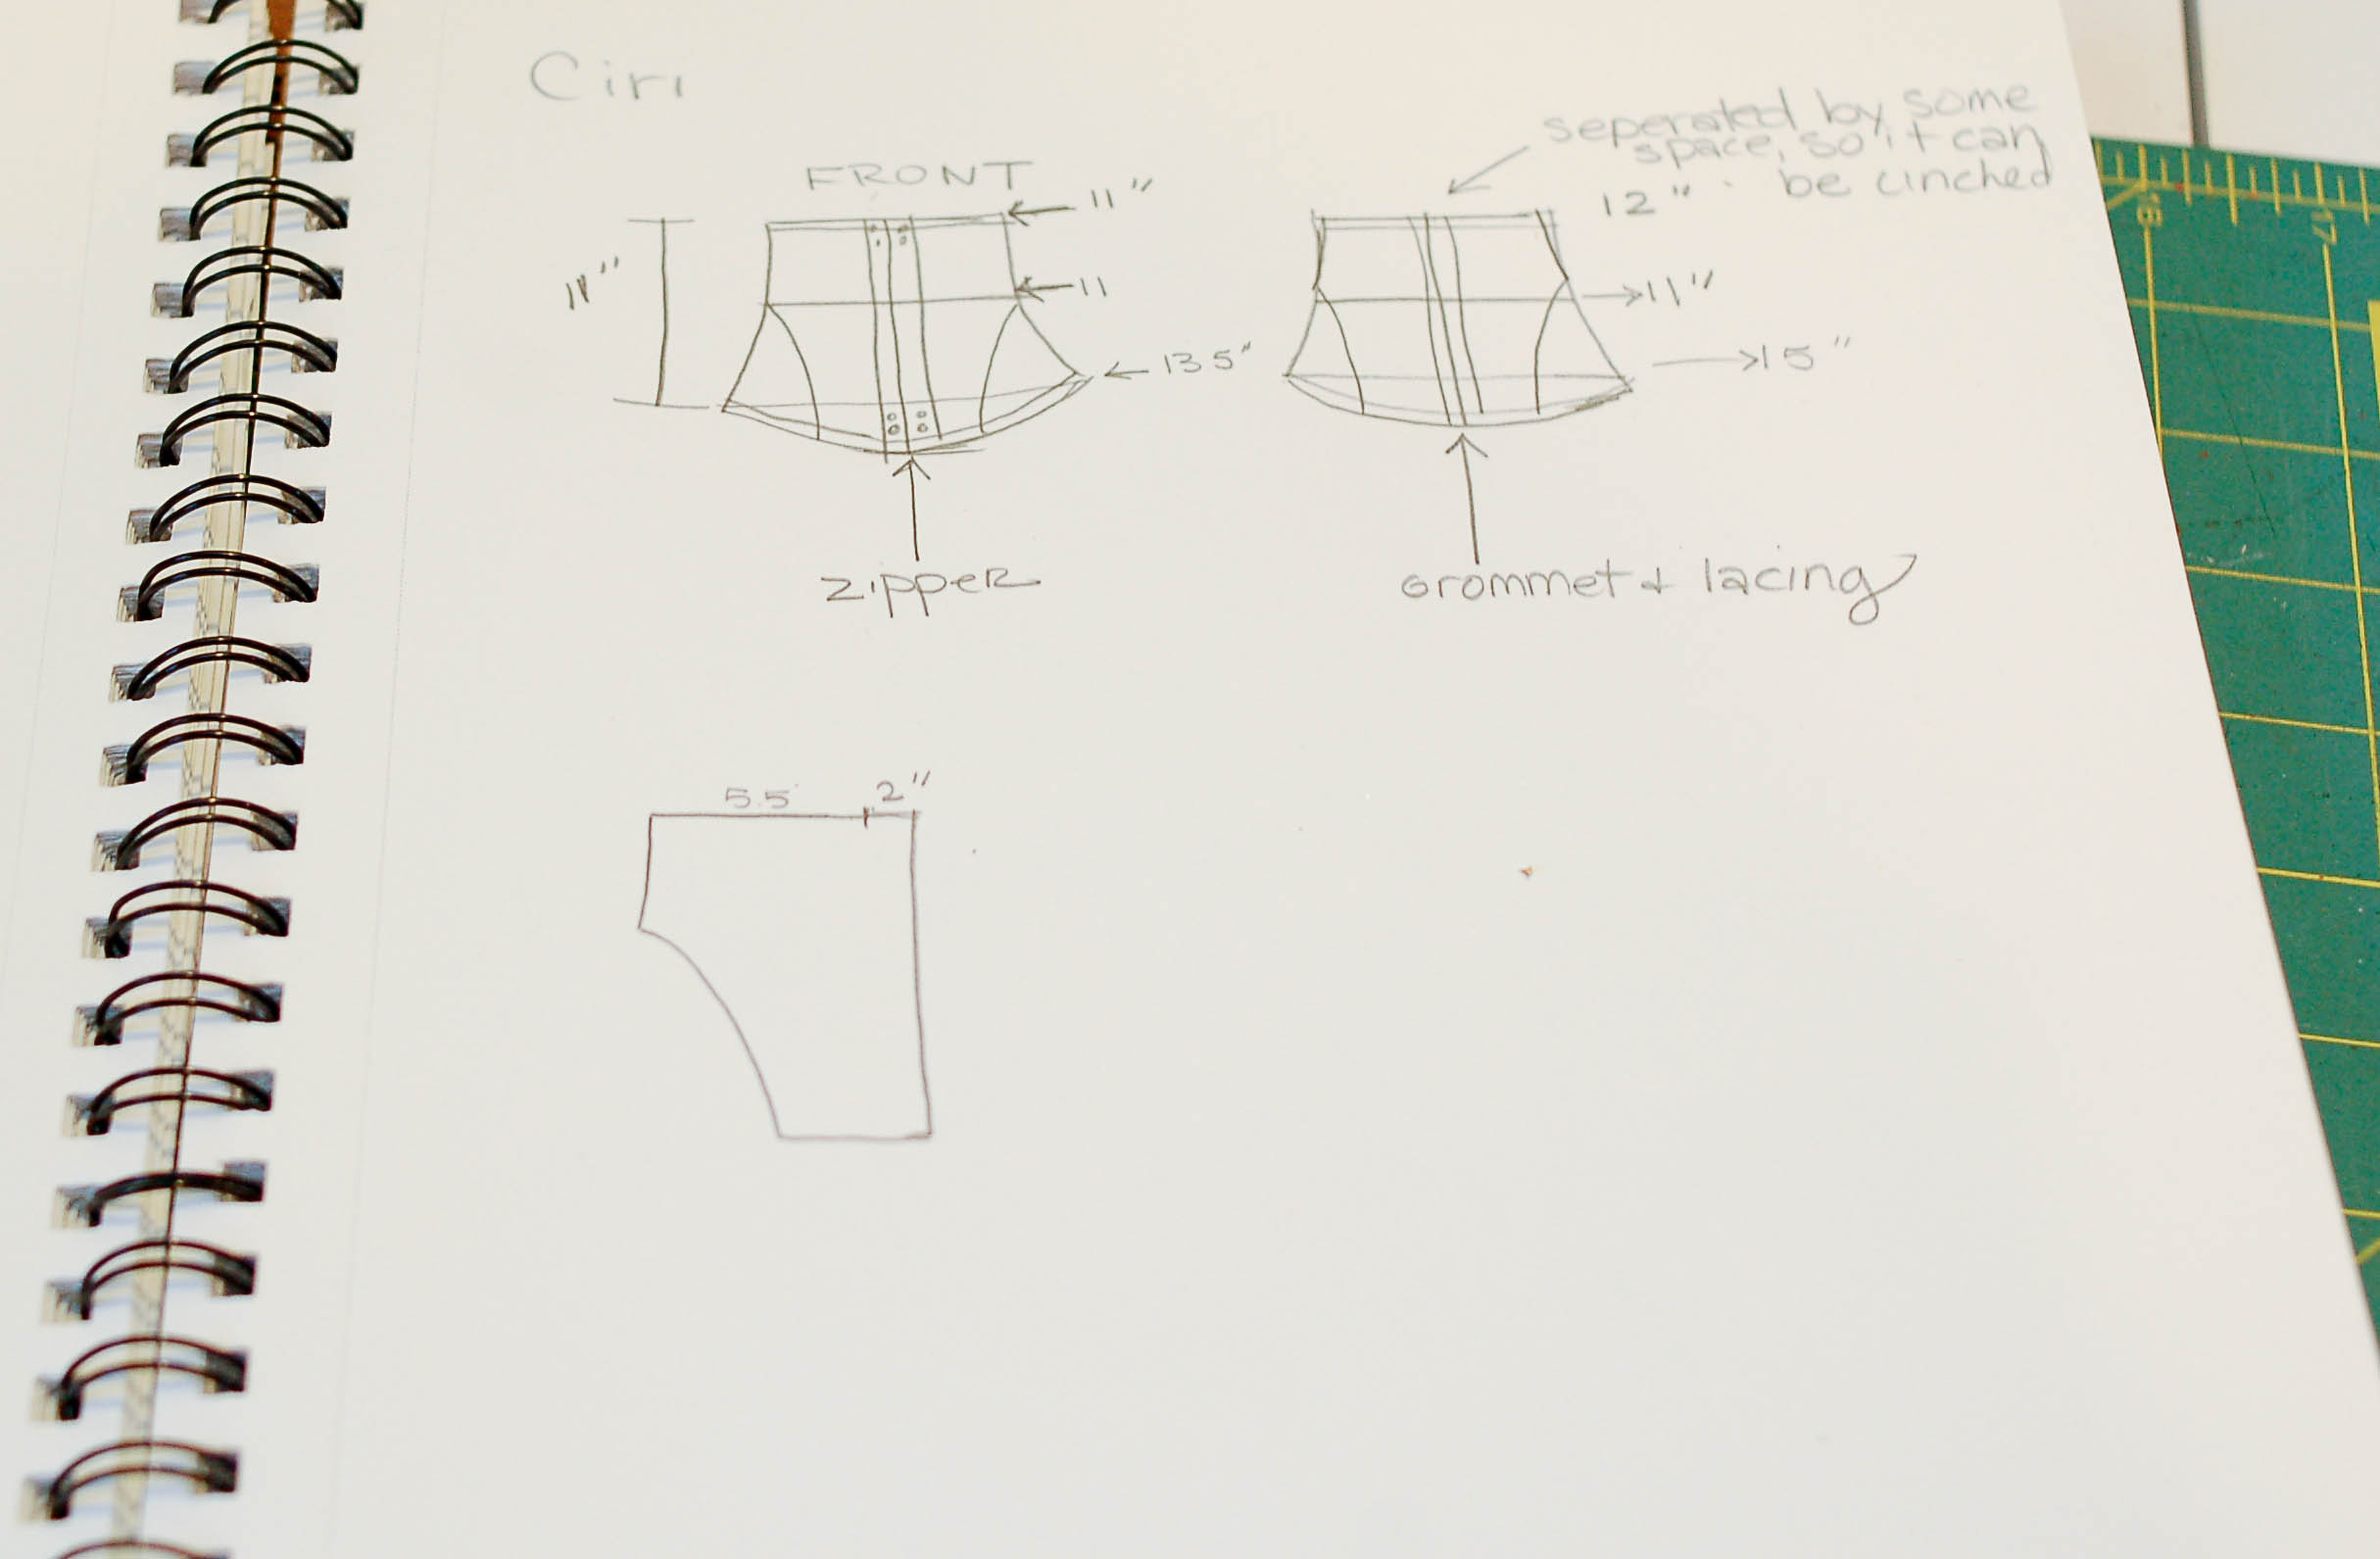 Ciri
seperated by some
space, so it can
be cinched
FRONT
11"
12"
11"
11
11"
13.5"
15"
zipper
Grommet & lacing
5.5
2"
17